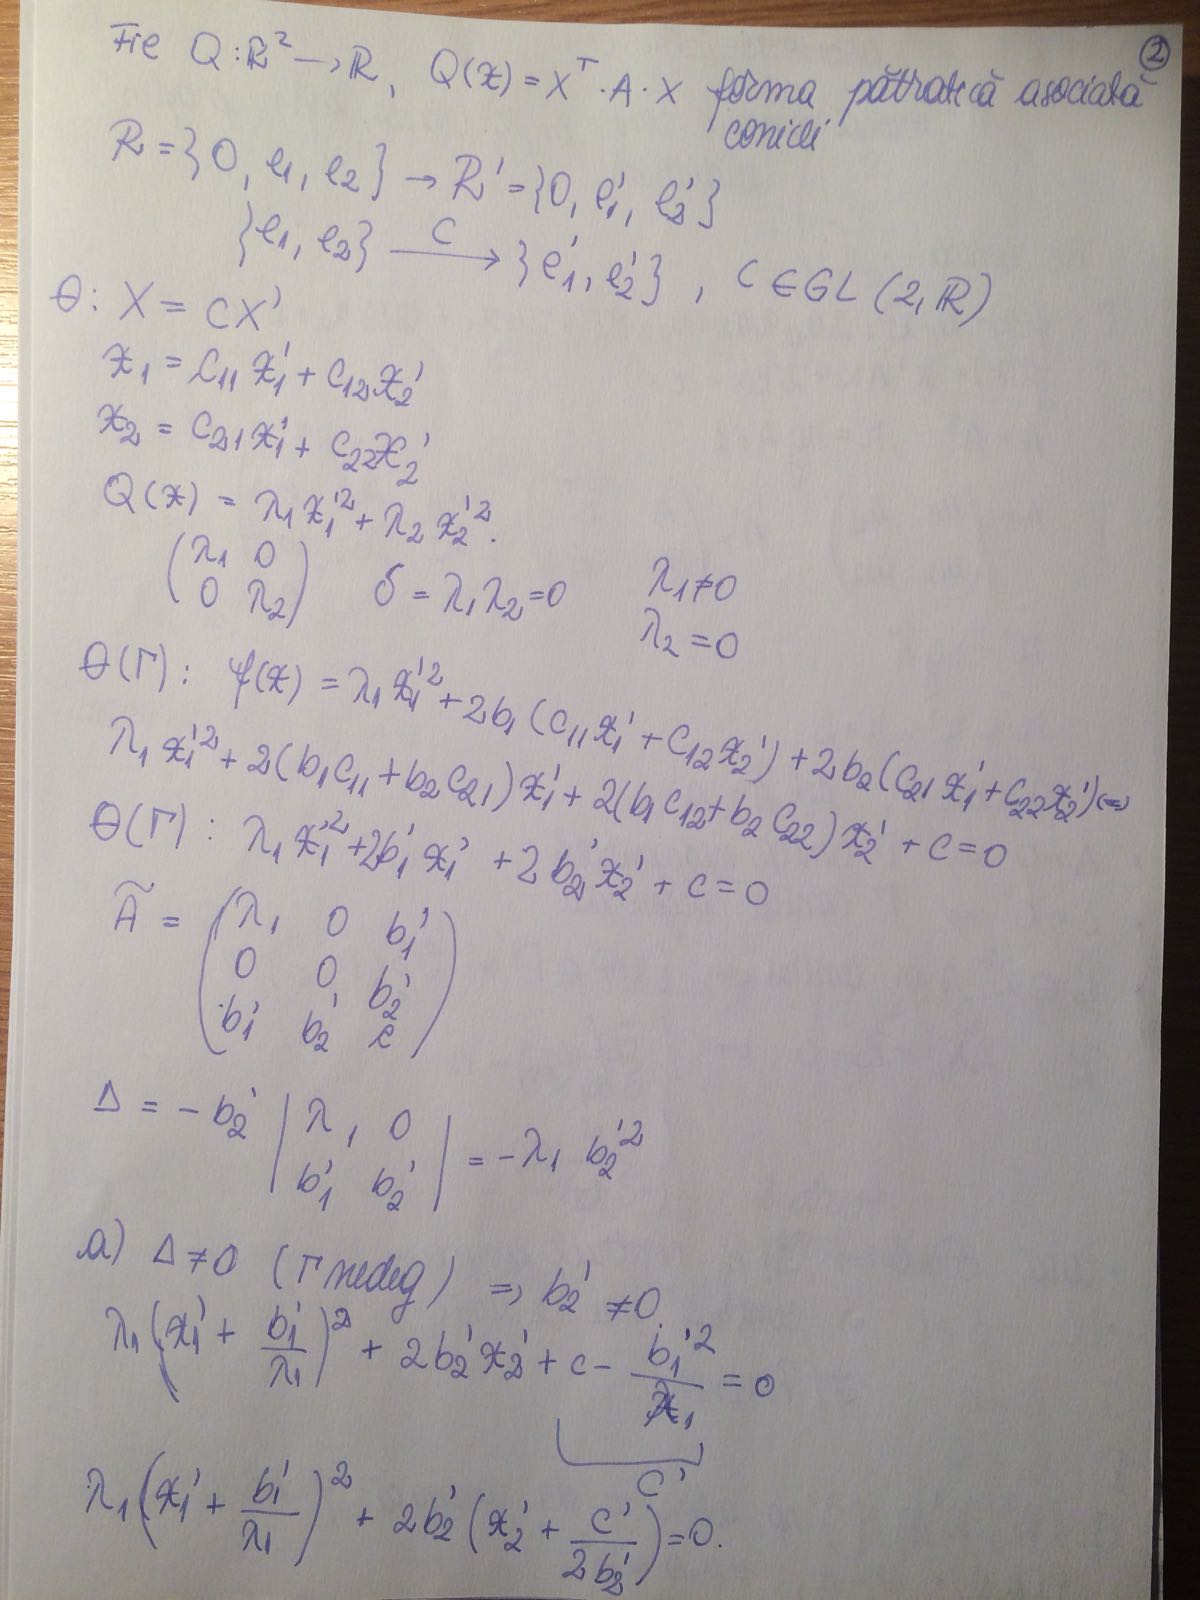 ②
Fie Q:ℝ²→ℝ, Q(x)=Xᵀ·A·X forma pătratică asociată
conicei
R={O, e₁, e₂}→R'={O, e₁', e₂'}
{e₁, e₂} —C→ {e₁', e₂'}, C∈GL(2,ℝ)
θ: X = CX'
x₁ = c₁₁x₁' + c₁₂x₂'
x₂ = c₂₁x₁' + c₂₂x₂'
Q(x) = λ₁x₁'² + λ₂x₂'².
(λ₁ 0
0 λ₂) δ = λ₁λ₂ = 0 λ₁≠0
λ₂=0
θ(Γ): f(x) = λ₁x₁'² + 2b₁(c₁₁x₁' + c₁₂x₂') + 2b₂(c₂₁x₁' + c₂₂x₂') (=)
λ₁x₁'² + 2(b₁c₁₁ + b₂c₂₁)x₁' + 2(b₁c₁₂ + b₂c₂₂)x₂' + c = 0
θ(Γ): λ₁x₁'² + 2b₁'x₁' + 2b₂'x₂' + c = 0
Ã = (λ₁ 0 b₁'
0 0 b₂'
b₁' b₂' c)
Δ = -b₂' |λ₁ 0
b₁' b₂'| = -λ₁ b₂'²
a) Δ≠0 (Γ nedeg) => b₂' ≠ 0.
λ₁(x₁' + b₁'/λ₁)² + 2b₂'x₂' + c - b₁'²/λ₁ = 0
c'
λ₁(x₁' + b₁'/λ₁)² + 2b₂'(x₂' + c'/2b₂') = 0.